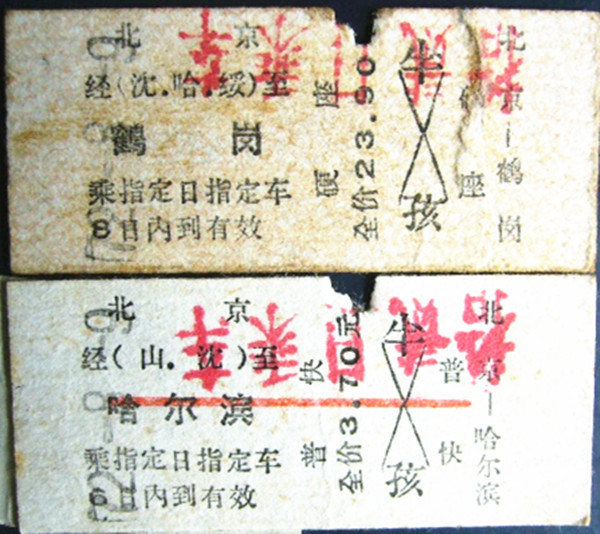 北 京
经(沈.哈.绥)至
鹤 岗
乘指定日指定车
8日内到有效
硬座
全价23.90
半
孩
硬座
北京—鹤岗
北 京
经(山.沈)至
哈尔滨
乘指定日指定车
6日内到有效
普快
全价3.70元
半
孩
普快
北京—哈尔滨